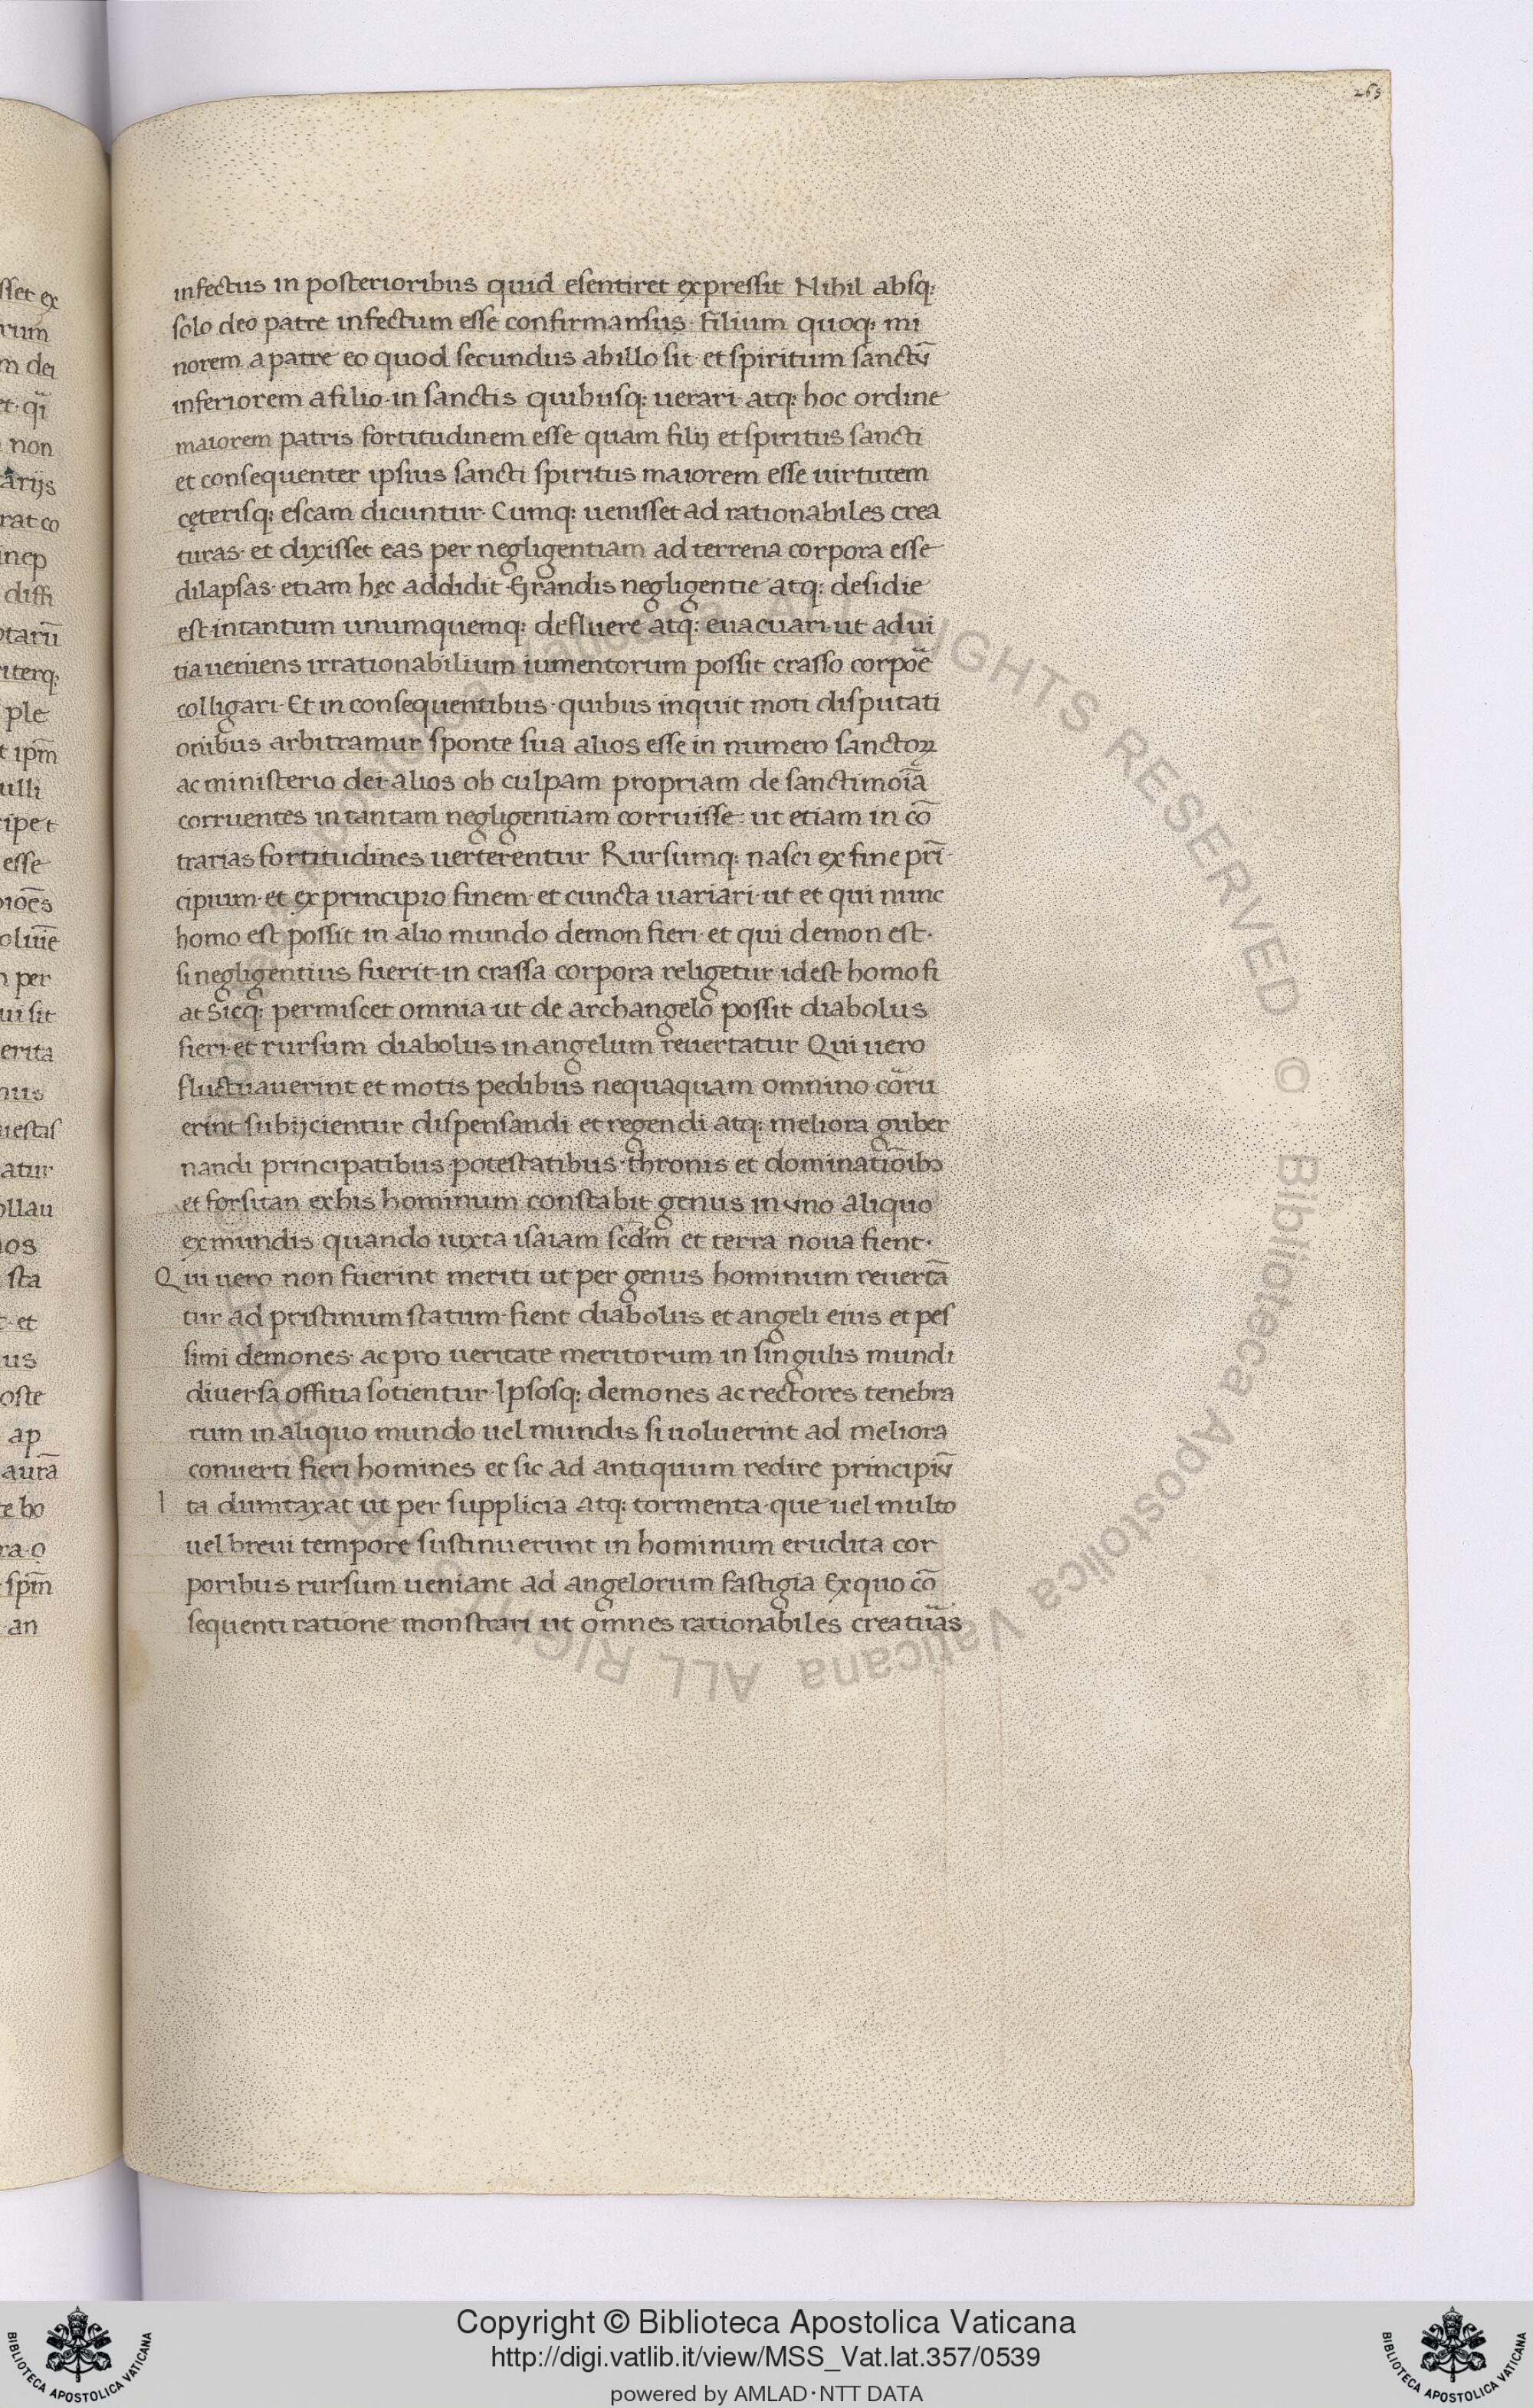 265
infectus in posterioribus quid esentiret expressit Nihil absq;
solo deo patre infectum esse confirmansus· filium quoq; mi
norem a patre eo quod secundus abillo sit· et spiritum sanctū
inferiorem a filio· in sanctis quibusq; uerari· atq; hoc ordine
maiorem patris fortitudinem esse quam filij et spiritus sancti
et consequenter ipsius sancti spiritus maiorem esse uirtutem
cęterisq; escam dicuntur· Cumq; uenisset ad rationabiles crea
turas· et dixisset eas per negligentiam ad terrena corpora esse
dilapsas· etiam hęc addidit· Grandis negligentie atq; desidie
est· intantum unumquemq; defluere atq; euacuari· ut ad ui
tia ueniens irrationabilium iumentorum possit crasso corpoē
colligari· Et in consequentibus· quibus inquit moti disputati
onibus arbitramur sponte sua alios esse in numero sanctoꝝ
ac ministerio dei· alios ob culpam propriam de sanctimoīa
corruentes in tantam negligentiam corruisse· ut etiam in cō
trarias fortitudines uerterentur Rursumq; nasci ex fine prī
cipium· et ex principio finem· et cuncta uariari· ut et qui nunc
homo est possit in alio mundo demon fieri· et qui demon est·
si negligentius fuerit· in crassa corpora religetur idest homo fi
at Sicq; permiscet omnia ut de archangelo possit diabolus
fieri· et rursum diabolus in angelum reuertatur Qui uero
fluctuauerint et motis pedibus nequaquam omnino cōru
erint subijcientur dispensandi et regendi atq; meliora guber
nandi principatibus· potestatibus· thronis et dominatiōibꝫ
et forsitan ex his hominum constabit genus in uno aliquo
ex mundis quando iuxta isaiam scd̄m et terra noua fient·
Qui uero non fuerint meriti ut per genus hominum reuertā
tur ad pristinum statum· fient diabolus et angeli eius et pes
simi demones· ac pro ueritate meritorum in singulis mundi
diuersa offitia sotientur· Ipsosq; demones ac rectores tenebra
rum in aliquo mundo uel mundis si uoluerint ad meliora
conuerti fieri homines et sic ad antiquum redire principiū
Ita dumtaxat ut per supplicia atq; tormenta· que uel multo
uel breui tempore sustinuerunt in hominum erudita cor
poribus rursum ueniant ad angelorum fastigia Ex quo cō
sequenti ratione monstrari ut omnes rationabiles creatuās
Copyright © Biblioteca Apostolica Vaticana
http://digi.vatlib.it/view/MSS_Vat.lat.357/0539
powered by AMLAD·NTT DATA